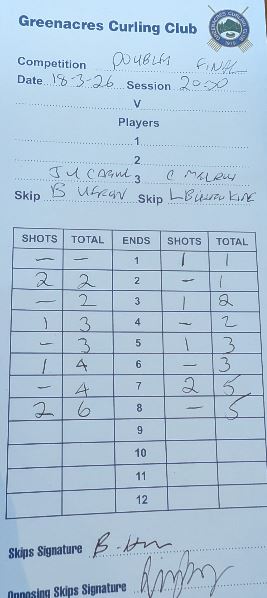 Greenacres Curling Club
Competition DOUBLES FINAL
Date 18-3-26 Session 20:00
V
Players
1
2
3
Skip B Skip L
SHOTS TOTAL ENDS SHOTS TOTAL
- - 1 1 1
2 2 2 - 1
- 2 3 1 2
1 3 4 - 2
- 3 5 1 3
1 4 6 - 3
- 4 7 2 5
2 6 8 - 5
9
10
11
12
Skips Signature B.
Opposing Skips Signature